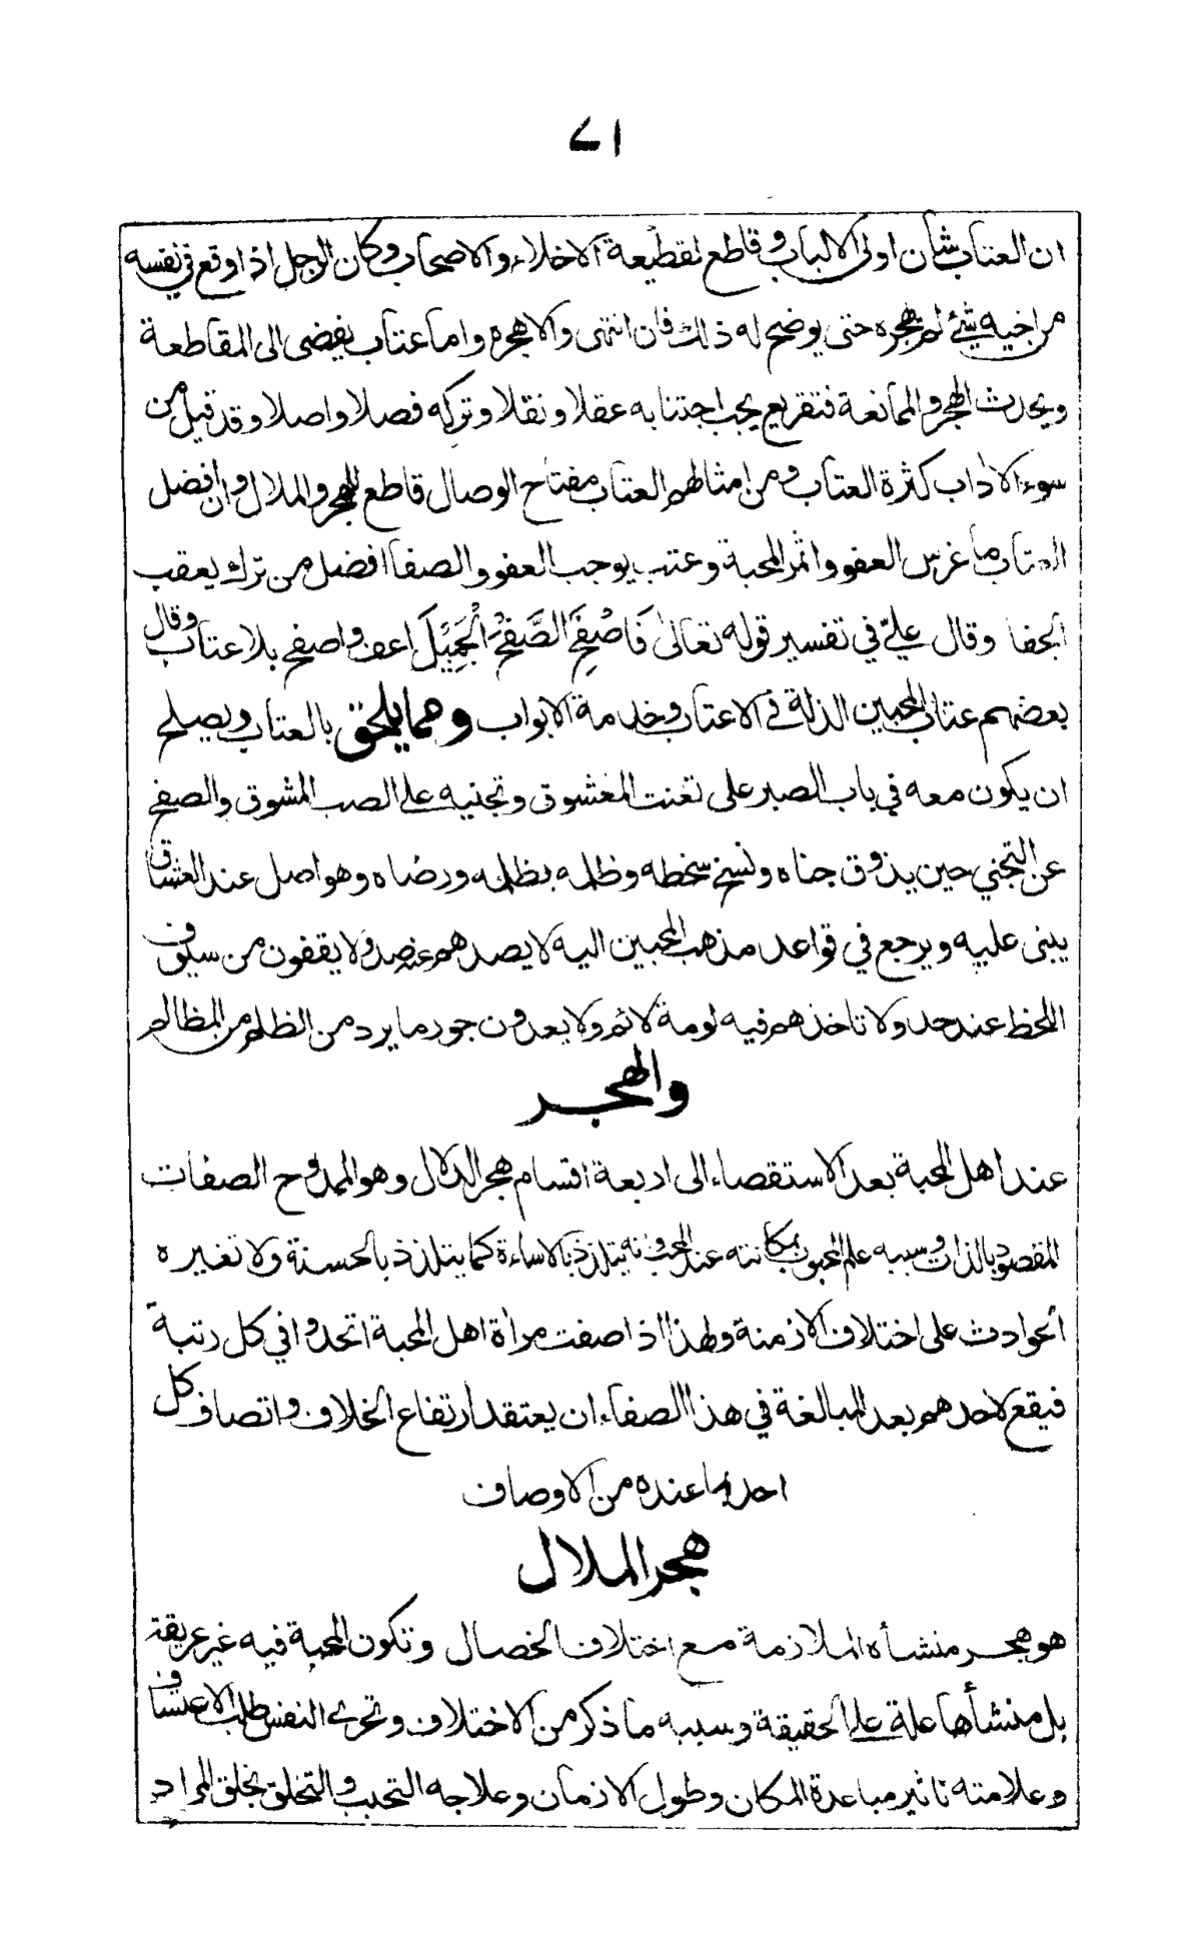 ٧١
ان العتاب شان اولى الالباب وقاطع لقطيعة الاخلاء والاصحاب وكان الرجل اذا وقع في نفسه
من اخيه شئ لم يهجره حتى يوضح له ذلك فان انتهى والا هجره واما عتاب يفضى الى المقاطعة
ويحدث الهجر والممانعة فتقريع يجب اجتنابه عقلا ونقلا وتركه فصلا واصلا وقد قيل من
سوء الاداب كثرة العتاب ومن امثالهم العتاب مفتاح الوصال قاطع للهجر والملال وان افضل
العتاب ما غرس العفو واثمر المحبة وعتب يوجب العفو والصفا افضل من ترك يعقب
الجفا وقال علي في تفسير قوله تعالى فَاصْفَحِ الصَّفْحَ الْجَمِيْلَ اعف واصفح بلا عتاب وقال
بعضهم عتاب المحبين الذلة في الاعتاب وخدمة الابواب ومما يلحق بالعتاب ويصلح
ان يكون معه في باب الصبر على تعنت المعشوق وتجنيه على الصب المشوق والصفح
عن التجني حين يذوق جناه ونسخ سخطه وظلمه بظلمه ورضاه وهو اصل عند العشاق
يبنى عليه ويرجع في قواعد مذهب المحبين اليه لا يصدهم عنه صد ولا يقفون من سيوف
اللحظ عند حد ولا تاخذهم فيه لومة لائم ولا يعدون جور ما يرد من الظلم من المظالم
والهجر
عند اهل المحبة بعد الاستقصاء الى اربعة اقسام هجر الدلال وهو الممدوح الصفات
المقصود بالذات وسببه علم المحبوب بمكانته عند المحب وانه يتلذذ بالاساءة كما يتلذذ بالحسنة ولا تغيره
الحوادث على اختلاف الازمنة ولهذا اذا صفت مراة اهل المحبة اتحدوا في كل رتبة
فيقع لاحدهم بعد المبالغة في هذا الصفاء ان يعتقد ارتفاع الخلاف واتصاف كل
احد بما عنده من الاوصاف
هجر الملال
هو هجر منشأه الملازمة مع اختلاف الخصال وتكون المحبة فيه غير عريقة
بل منشأها علة على الحقيقة وسببه ما ذكر من الاختلاف وتحرى النفس طلب الاعتساف
وعلامته تاثير مباعدة المكان وطول الازمان وعلاجه التحبب والتخلق بخلق المراد